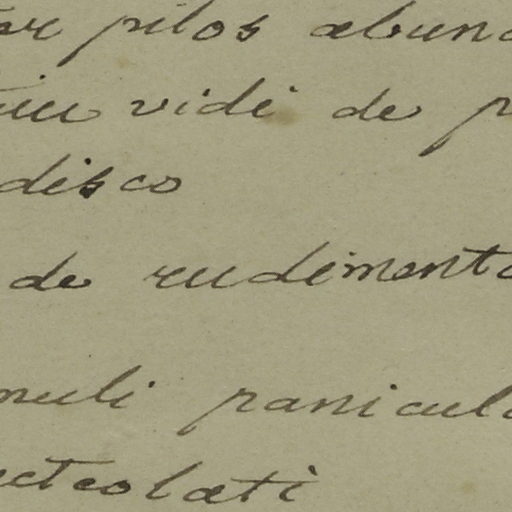 pilos abund
vidi de p
disco
de rudimento
muli panicula
acteolati